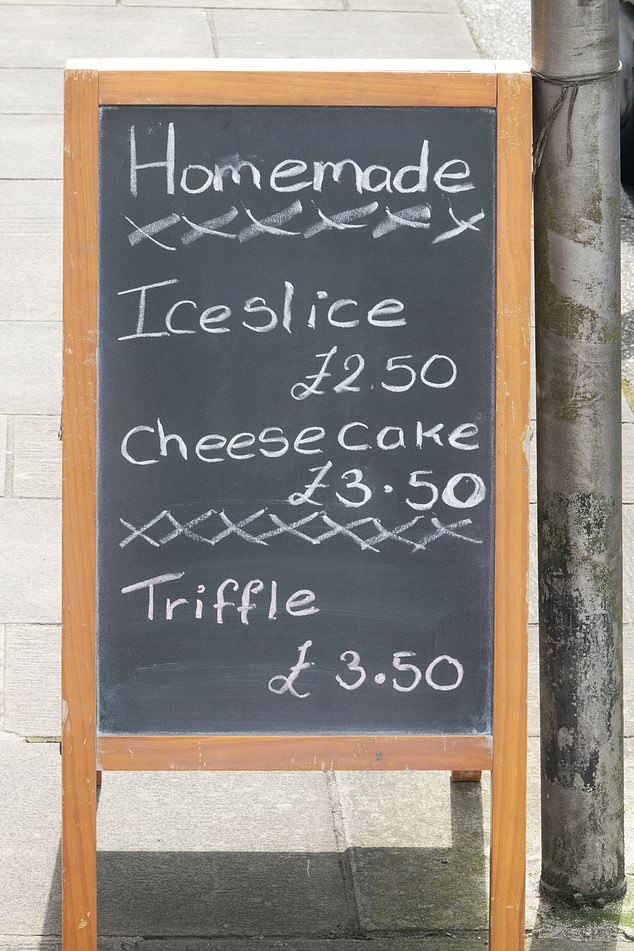 Homemade
Iceslice
£2.50
Cheesecake
£3.50
Triffle
£3.50